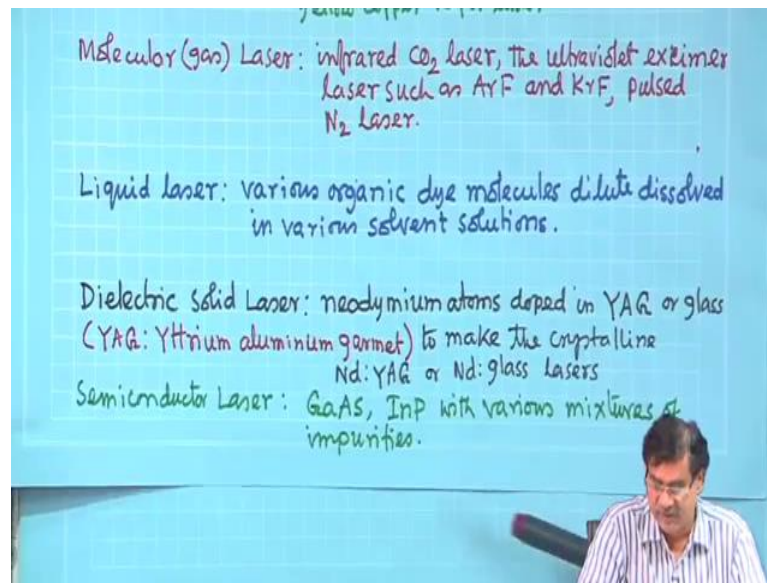 yellow copper vapor laser
Molecular (gas) Laser: infrared CO2 laser, the ultraviolet excimer
laser such as ArF and KrF, pulsed
N2 Laser.
Liquid laser: various organic dye molecules dilute dissolved
in various solvent solutions.
Dielectric solid Laser: neodymium atoms doped in YAG or glass
(YAG: YHrium aluminum garmet) to make the crystalline
Nd:YAG or Nd:glass Lasers
Semiconductor Laser: GaAs, InP with various mixtures of
impurities.